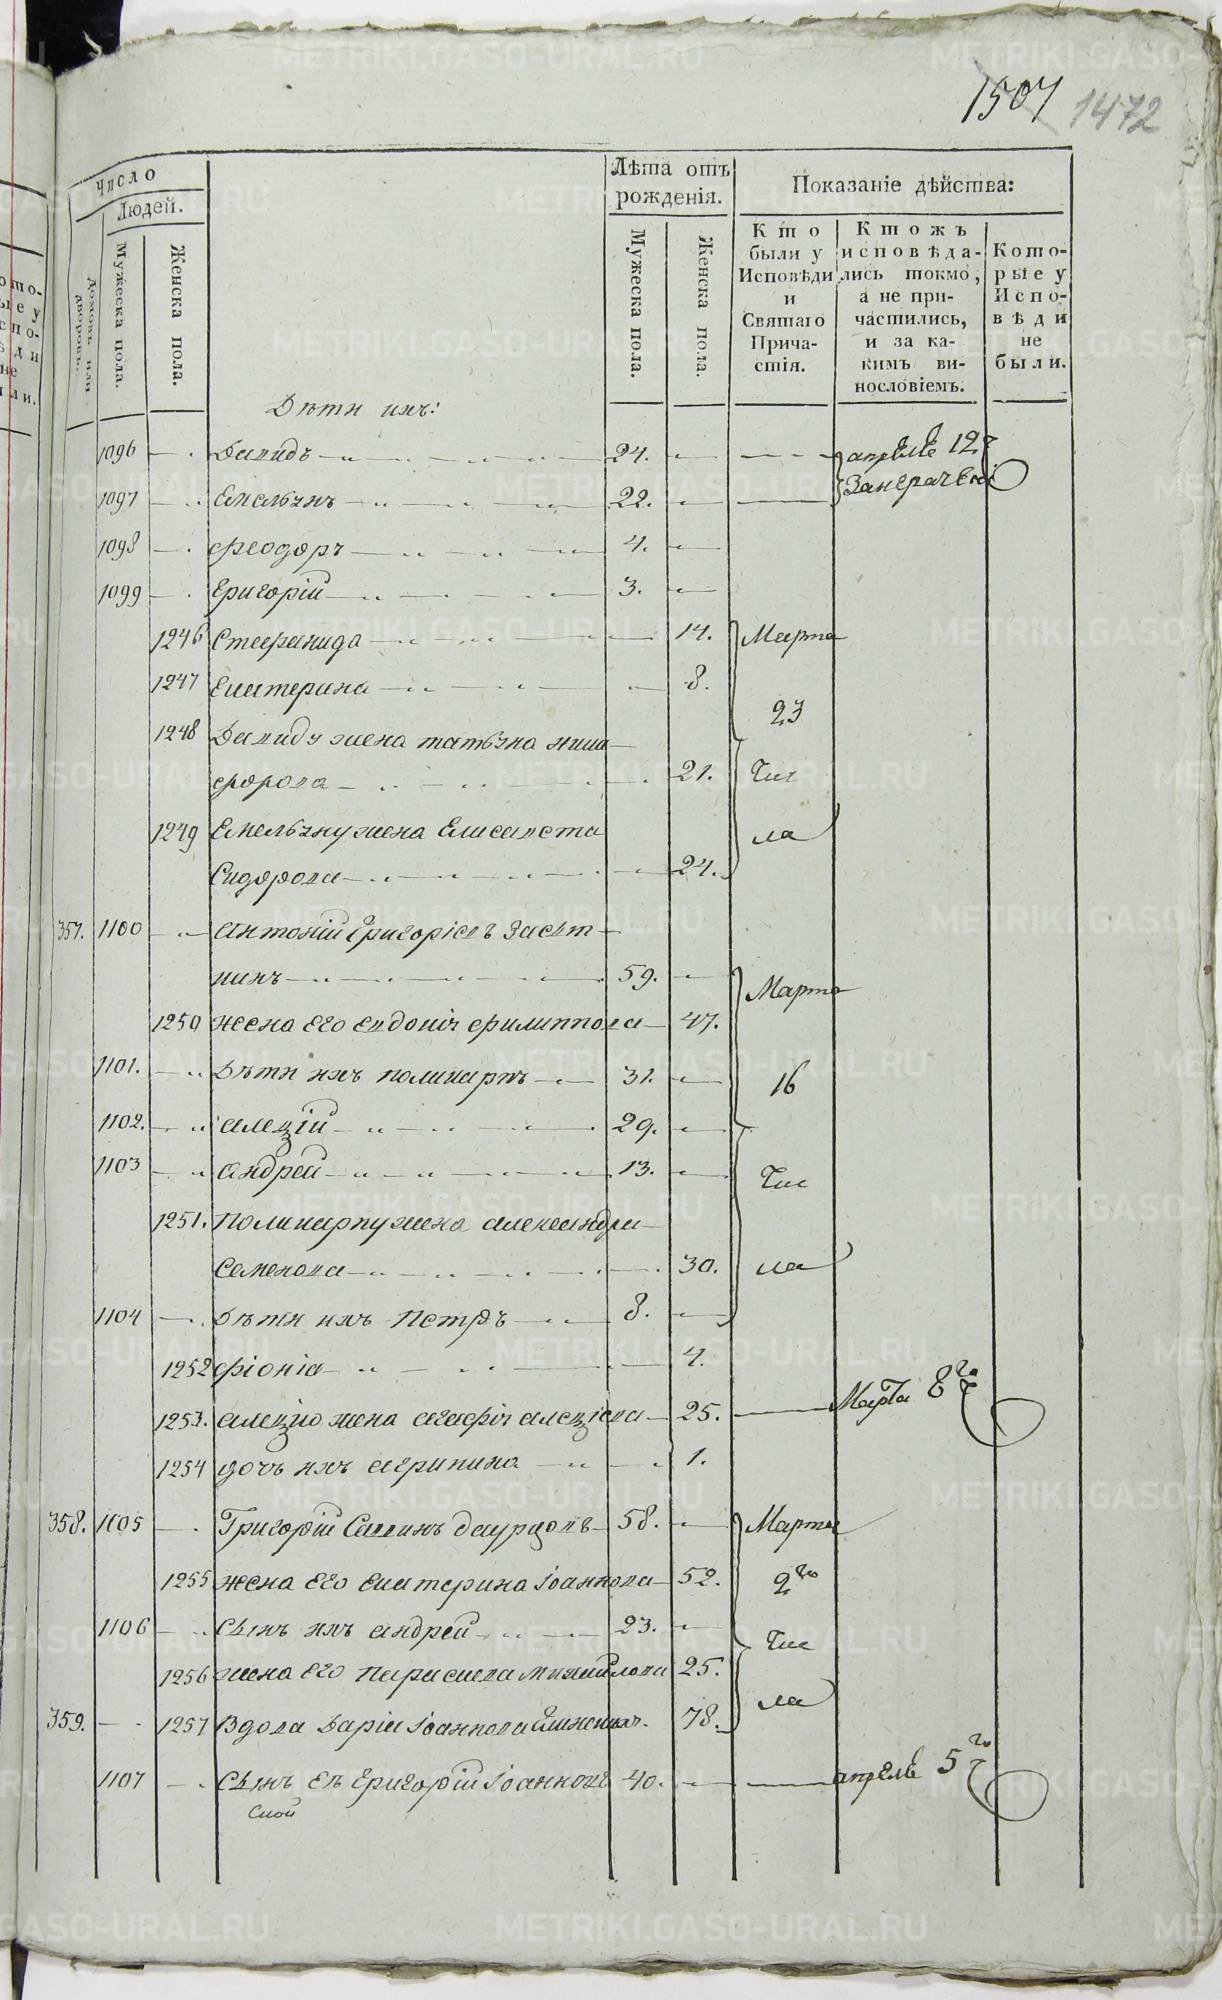 1507 1472
Число
Людей.
Домовъ или дворовъ.
Мужеска пола.
Женска пола.
Лѣта отъ рожденія.
Мужеска пола.
Женска пола.
Показаніе дѣйства:
Кто были у Исповѣди и Святаго Причастія.
Ктожъ исповѣдались токмо, а не причастились, и за какимъ винословіемъ.
Которые у Исповѣди не были.
Дѣти ихъ:
1096 Давидъ 24. апрѣля 12г
1097 Емельянъ 22.
1098 Феодоръ 4.
1099 Григорій 3.
1246 Стефанида 14. Марта
1247 Екатерина 8.
23
1248 Давиду жена татьяна ники-
форова 21. Чис
1249 Емельяну жена Елисавета ла
Сидорова 24.
357. 1100 Антоній Григоріевъ
нинъ 59. Марта
1250 жена Его Евдокія филиппова 47.
1101. Дѣти ихъ поликарпъ 31. 16
1102. алексій 29.
1103 андрей 13. Чис
1251. Поликарпу жена александра
Семенова 30. ла
1104 дѣти ихъ Петръ 8.
1252 фіонія 4.
1253. алексію жена агафія алексіева 25. Марта 8го
1254 дочь ихъ агрипина 1.
358. 1105 Григорій Саввинъ 58. Марта
1255 жена Его Екатерина Іоаннова 52. 2го
1106 сынъ ихъ андрей 23. Чис
1256 жена Его Параскева михайлова 25. ла
359. 1257 Вдова Дарія Іоаннова 78.
1107 сынъ Ея Григорій Іоанновъ 40. апрѣля 5го
METRIKI.GASO-URAL.RU